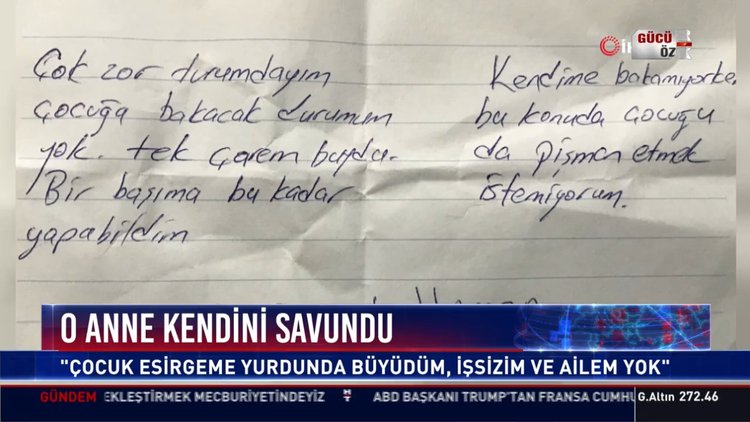 GÜCÜ
ÖZ
Çok zor durumdayım
çocuğa bakacak durumum
yok. tek çarem buydu.
Bir başıma bu kadar
yapabildim
Kendime bakamıyorke
bu konuda çocuğu
da pişman etmek
istemiyorum.
O ANNE KENDİNİ SAVUNDU
"ÇOCUK ESİRGEME YURDUNDA BÜYÜDÜM, İŞSİZİM VE AİLEM YOK"
GÜNDEM EKLEŞTİRMEK MECBURİYETİNDEYİZ ABD BAŞKANI TRUMP'TAN FRANSA CUMHU G.Altın 272.46